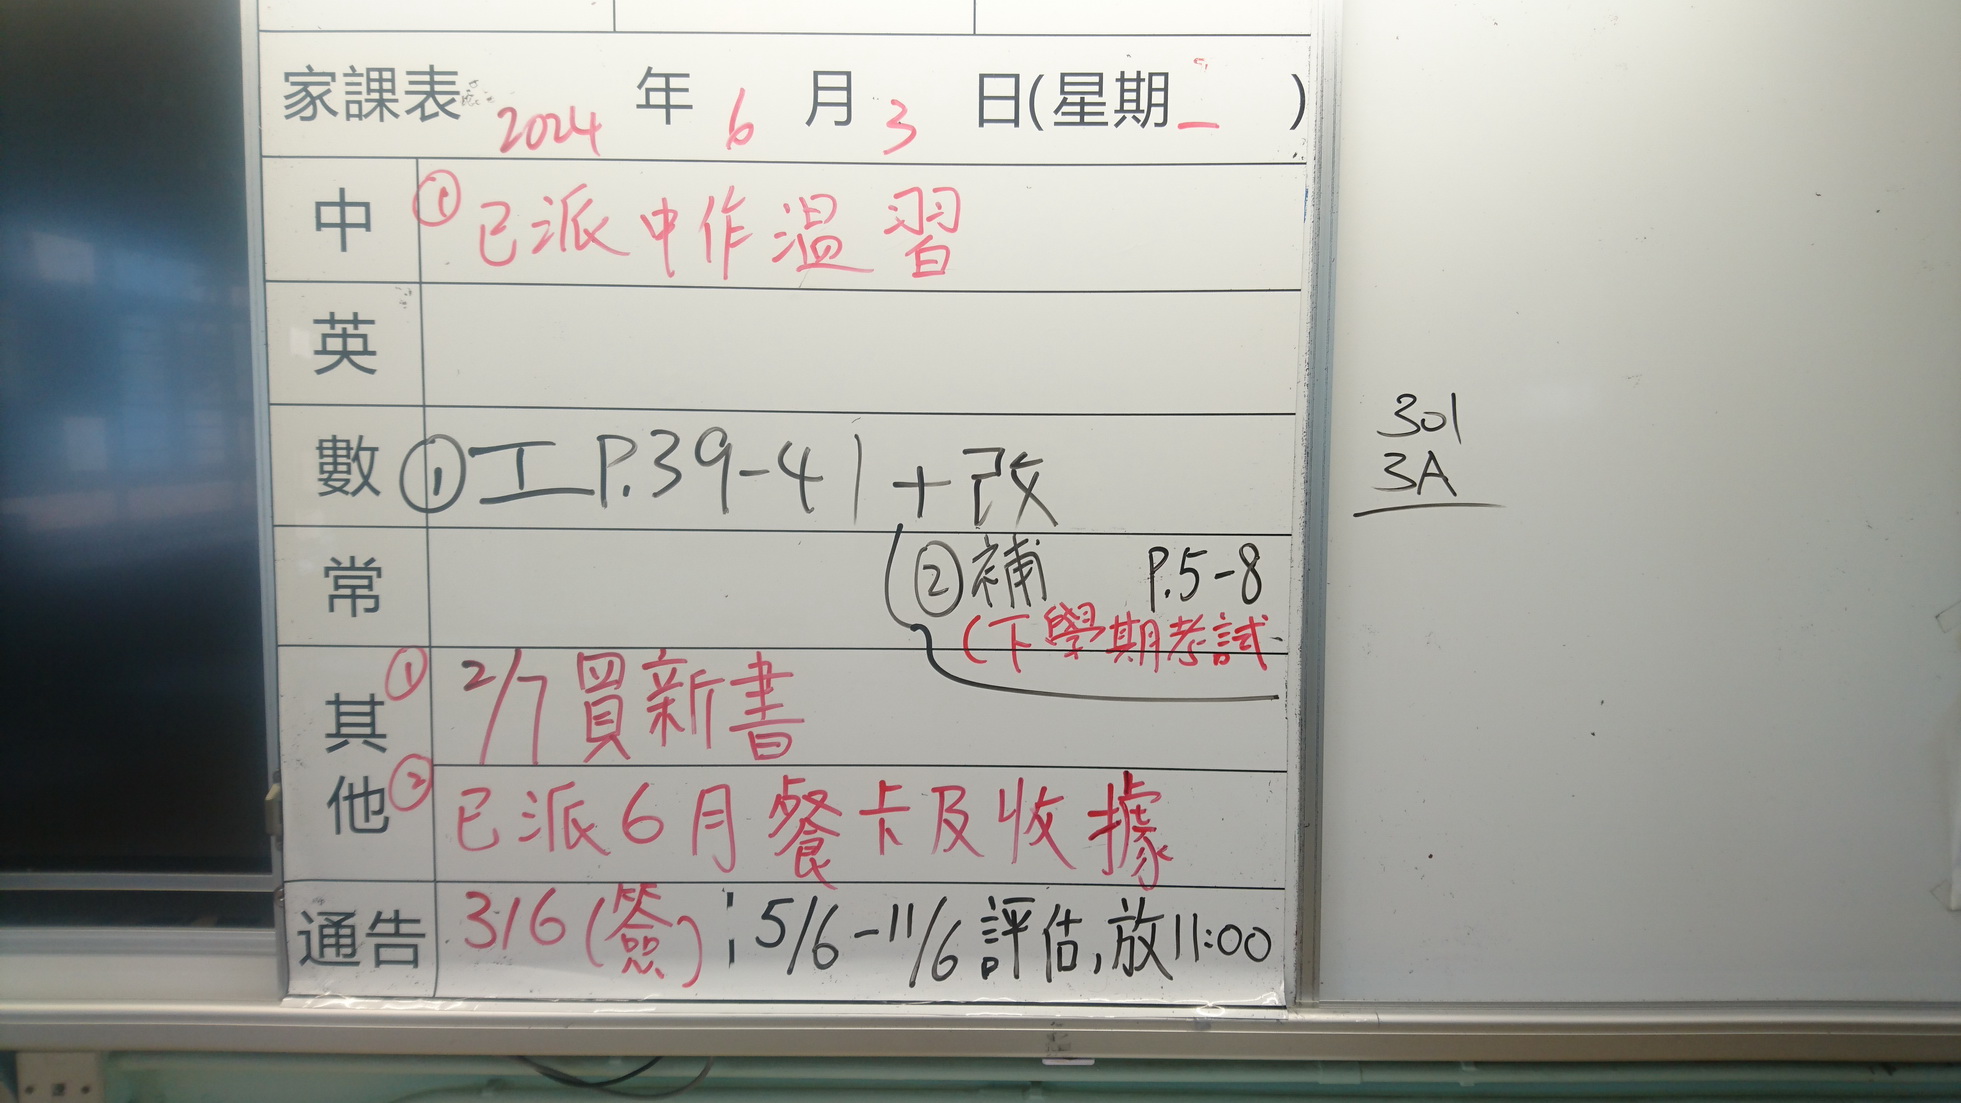 家課表 2024 年 6 月 3 日(星期一)
中 ① 已派中作溫習
英
數 ① 工 P.39-41 + 改
常 ② 補 P.5-8
(下學期考試
其他 ① 2/7 買新書
② 已派6月餐卡及收據
通告 316 (簽) ; 5/6-11/6 評估,放11:00
301
3A